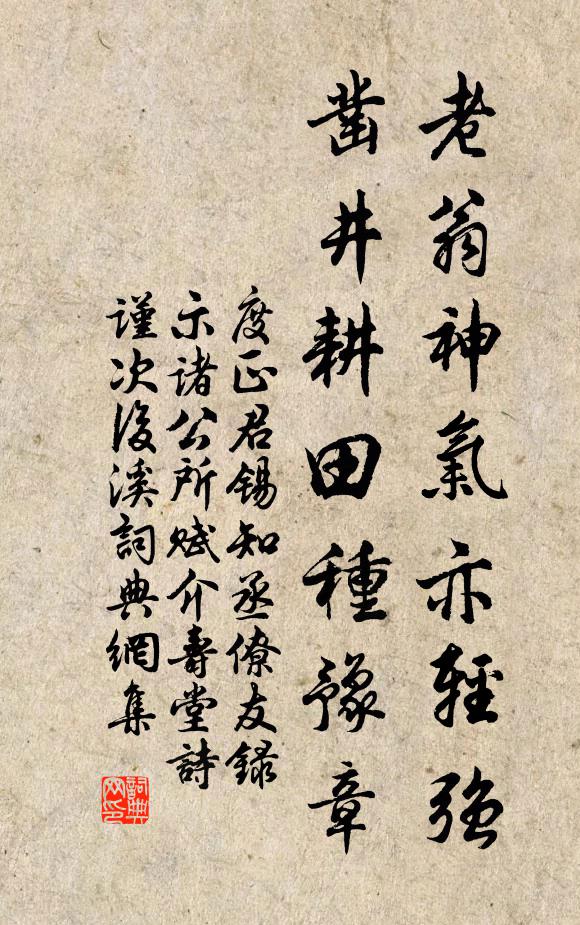 老翁神氣亦輕強
鑿井耕田種豫章
度正君錫知丞僚友錄
示諸公所賦介壽堂詩
謹次後溪詞典網集
詞典网印